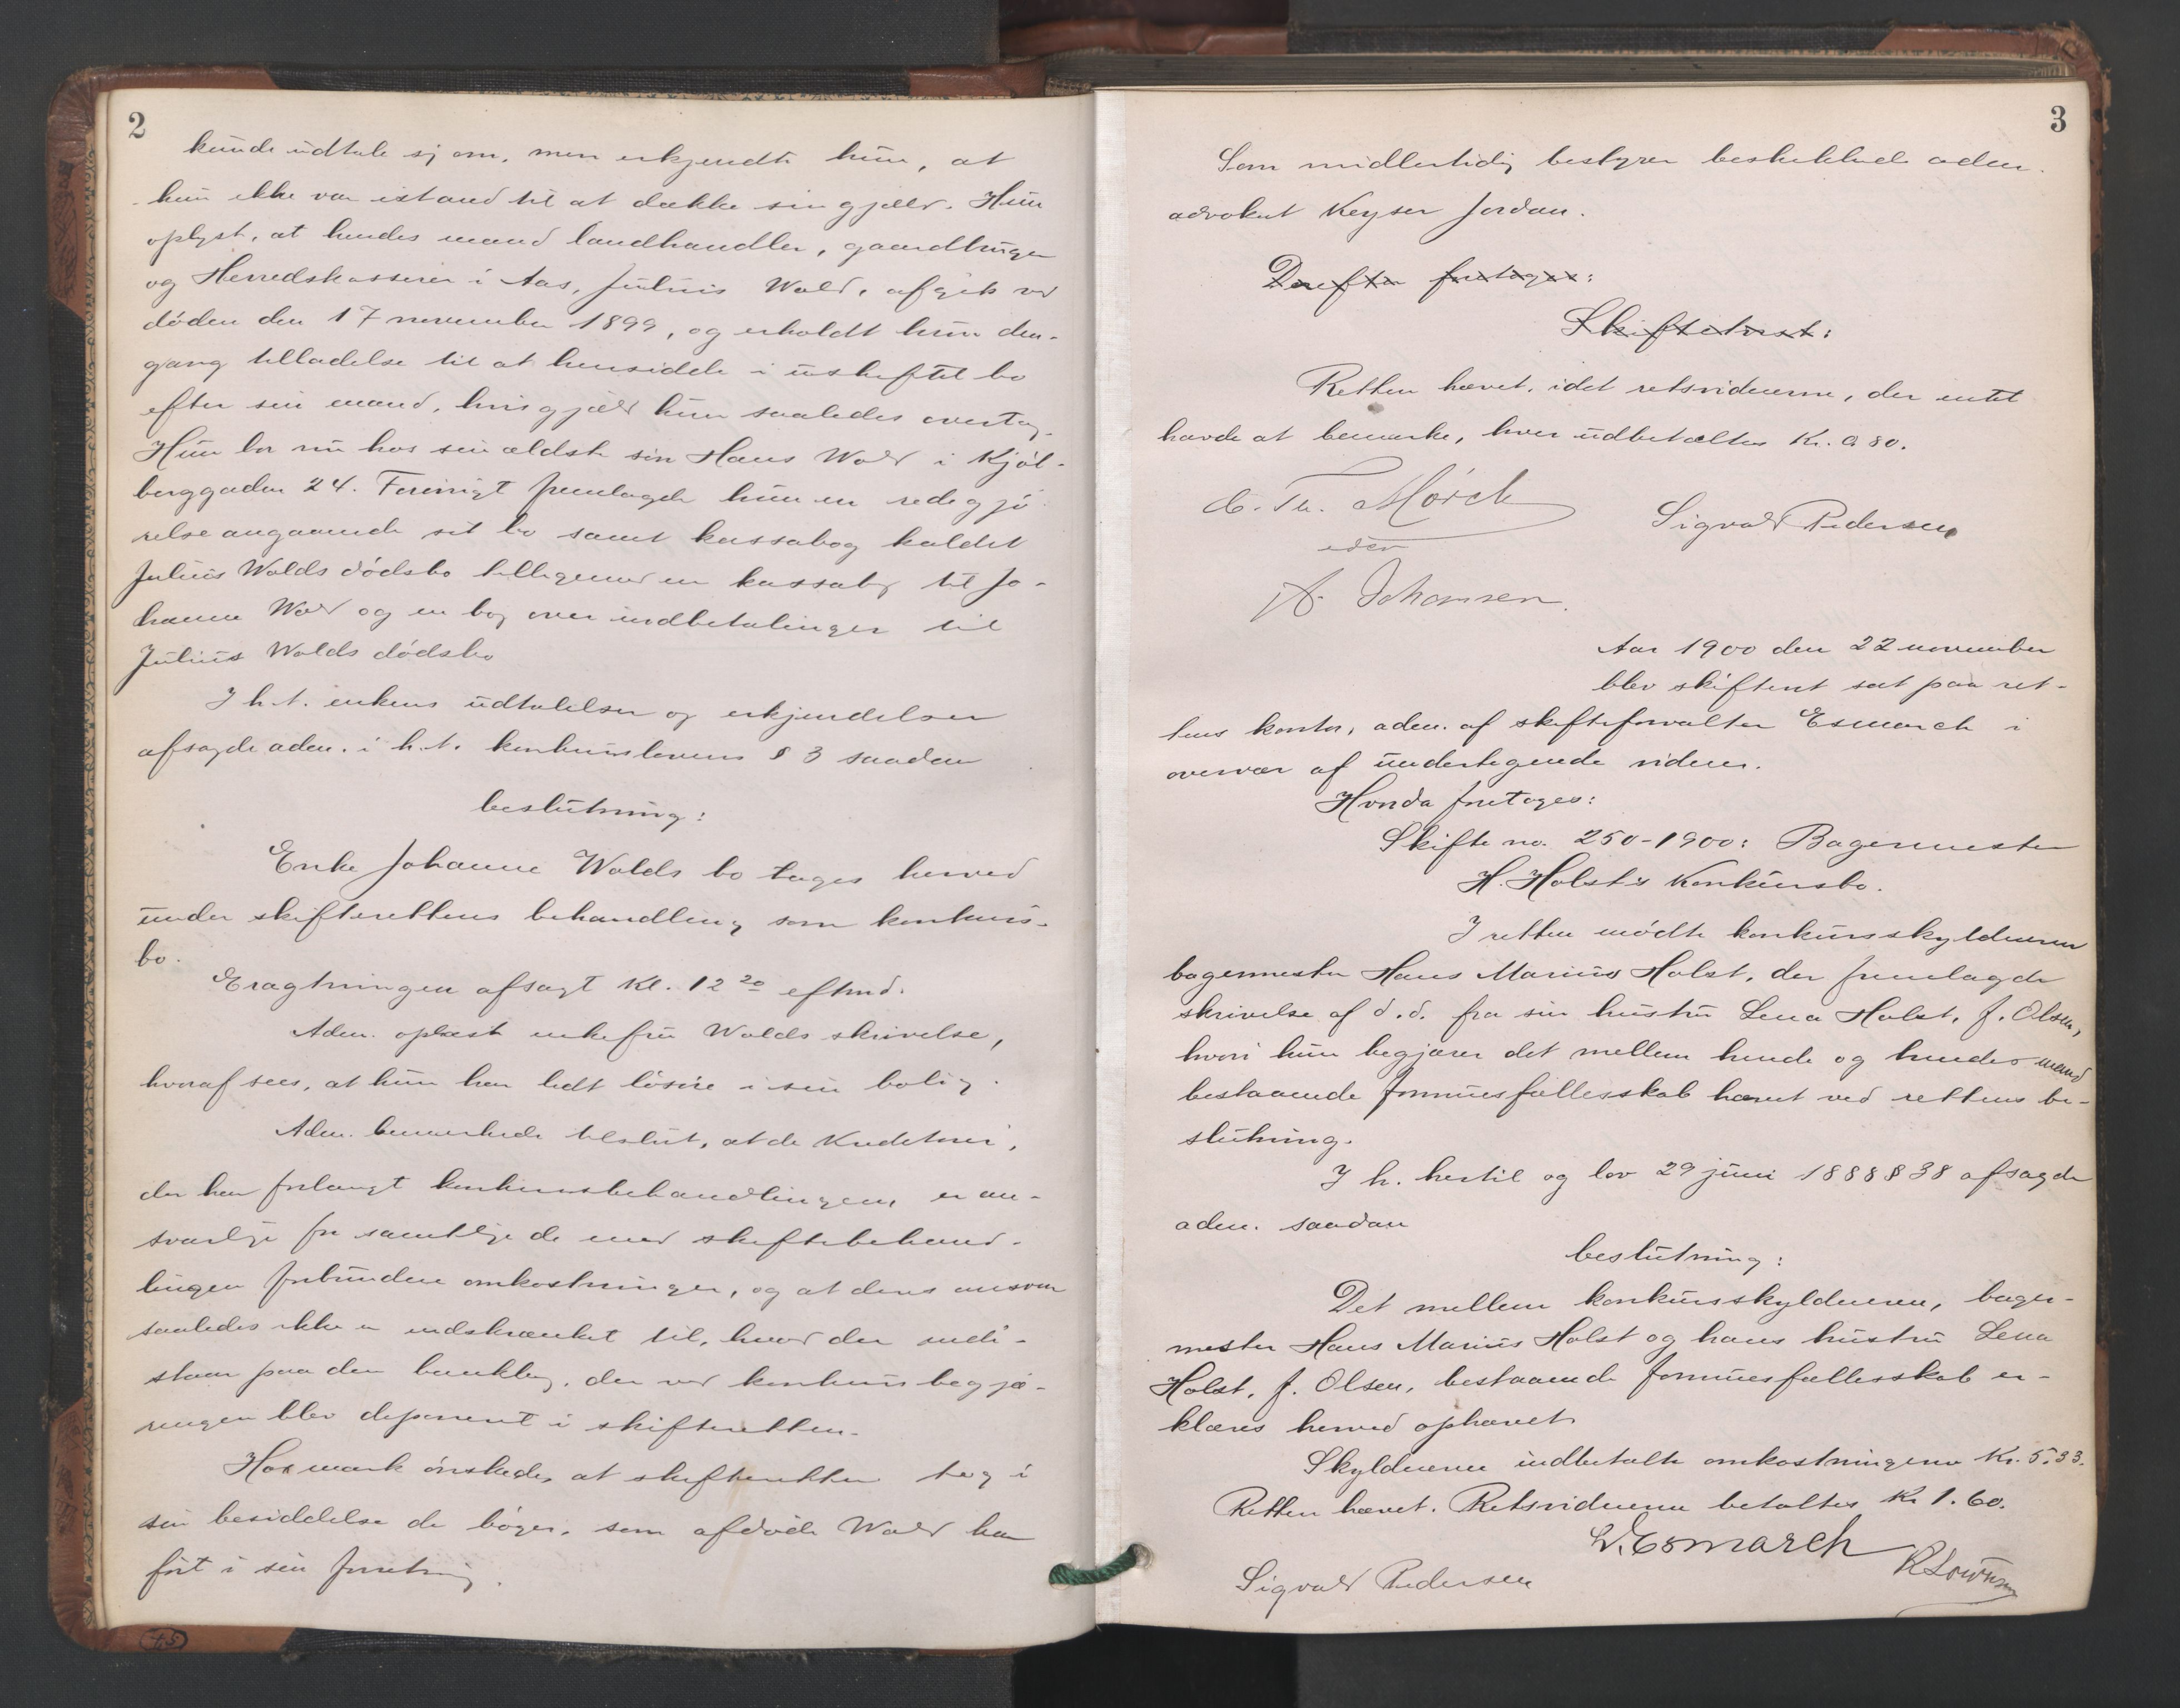 2
kunde udtale sj om, men erkjendte hun, at
hun ikke var istand til at dække sin gjæld. Hun
oplyst, at hendes mand landhandler, gaardbruger
og Herredskasserer i Aas, Julius Wold, afgik ved
döden den 17 november 1899, og erholdt hun den-
gang tilladelse til at hensidde i uskiftet bo
efter sin mand, hvis gjæld hun saaledes overtog.
Hun bor nu hos sin ældste sön Hans Wold i Kjöl-
berggaden 24. Forövrigt fremlagde hun en redegjö-
relse angaaende sit bo samt kassabog kaldet
Julius Wolds dödsbo tilligemed en kassabog til Jo-
hanne Wold og en bog over indbetalinger til
Julius Wolds dödsbo
I h.t. enkens udtalelser og erkjendelser
afsagde adm. i h.t. konkurslovens § 3 saadan
beslutning:
Enke Johanne Wolds bo tages herved
under skifterettens behandling som konkurs-
bo.
Eragtningen afsagt Kl. 12 20 eftmd.
Adm. oplæste enkefru Wolds skrivelse,
hvoraf sees, at hun har lidt lösöre i sin bolig.
Adm. bemærkede tilslut, at de Kreditorer,
der har forlangt konkursbehandlingen, er an-
svarlige for samtlige de med skiftebehand-
lingen forbundne omkostninger, og at deres ansvar
saaledes ikke er indskrænket til, hvad der inde-
staar paa den bankbog, der ved konkursbegjæ-
ringen blev deponeret i skifteretten.
Hoxmark önskede, at skifteretten tog i
sin besiddelse de böger, som afdöde Wold har
fört i sin forretning.
3
Som midlertidig bestyrer beskikkede adm.
advokat Keyser Jordan.
Derefter foretages:
Skifteturst:
Retten hævet, idet retsvidnerne, der intet
havde at bemærke, hver udbetaltes Kr. 0.80.
C. Th. Mörch
Sigvald Pedersen
A. Johansen.
Aar 1900 den 22 november
blev skifteret sat paa ret-
tens kontor, adm. af skifteforvalter Esmarch i
overvær af undertegnede vidner.
Hvorda foretages:
Skifte no. 250-1900: Bagermester
H. Holst's Konkursbo.
I retten mödte konkursskyldneren
bagermester Hans Marius Holst, der fremlagde
skrivelse af d.d. fra sin hustru Lena Holst, f. Olsen,
hvori hun begjærer det mellem hende og hendes mand
bestaaende formuesfællesskab hævet ved rettens be-
slutning.
I h. hertil og lov 29 juni 1888 § 38 afsagde
adm. saadan
beslutning:
Det mellem konkursskyldneren, bager-
mester Hans Marius Holst og hans hustru Lena
Holst, f. Olsen, bestaaende formuesfællesskab er-
klæres herved ophævet.
Skyldneren indbetalte omkostningerne Kr. 5.33.
Retten hævet. Retsvidnerne betaltes Kr 1.60.
L. Esmarch
Sigvald Pedersen
45